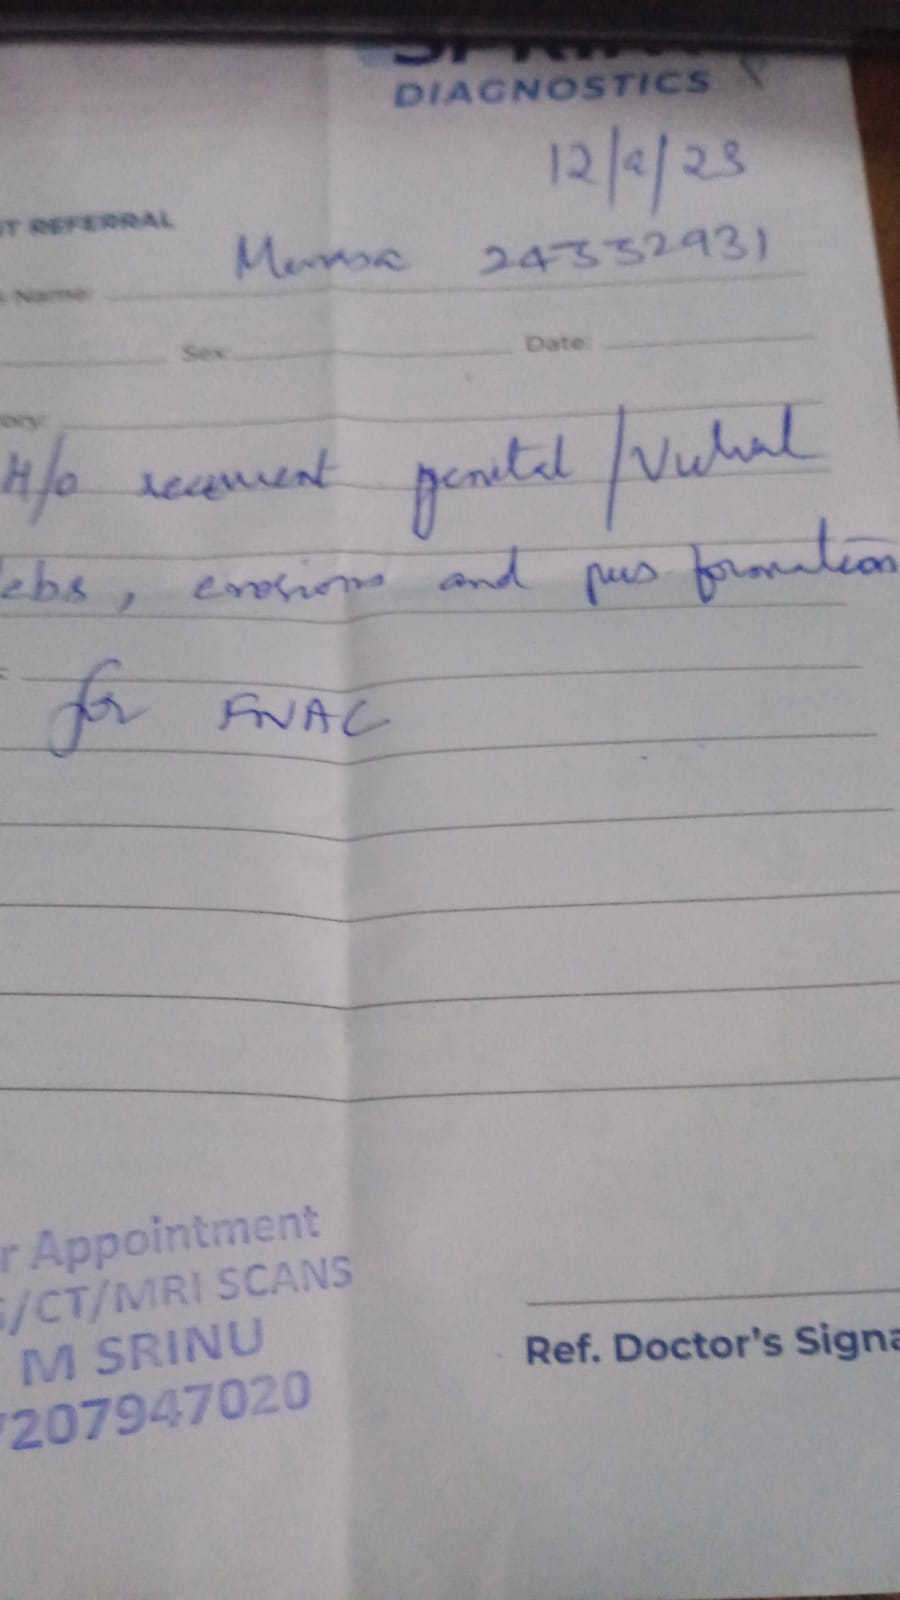 DIAGNOSTICS
12/9/23
T REFERRAL
24332931
Name:
Sex: Date:
ory:
H/o recurrent genital / Vulval
ebs, erosions and pus formation
for FNAC
r Appointment
/CT/MRI SCANS
M SRINU
7207947020
Ref. Doctor's Signa